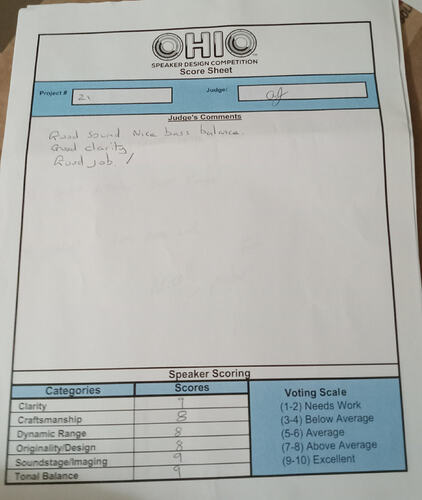 OHIO
SPEAKER DESIGN COMPETITION
Score Sheet
Project # 21
Judge:
Judge's Comments
Good sound Nice bass balance.
Good clarity
Good job!
Speaker Scoring
Categories Scores
Clarity 9
Craftsmanship 8
Dynamic Range 8
Originality/Design 8
Soundstage/Imaging 9
Tonal Balance 9
Voting Scale
(1-2) Needs Work
(3-4) Below Average
(5-6) Average
(7-8) Above Average
(9-10) Excellent